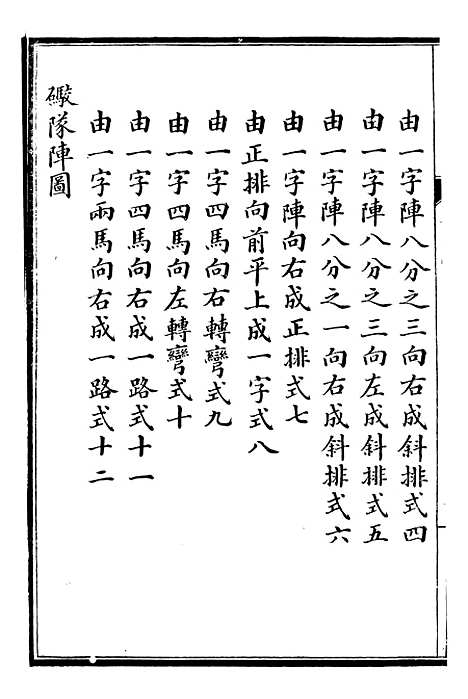 由一字陣八分之三向右成斜排式四
由一字陣八分之三向左成斜排式五
由一字陣八分之一向右成斜排式六
由一字陣向右成正排式七
由正排向前平上成一字式八
由一字四馬向右轉彎式九
由一字四馬向左轉彎式十
由一字四馬向右成一路式十一
由一字兩馬向右成一路式十二
礮隊陣圖